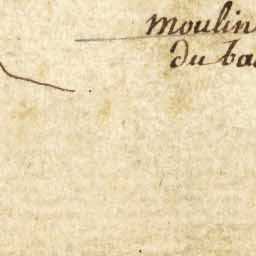 moulin
du ba